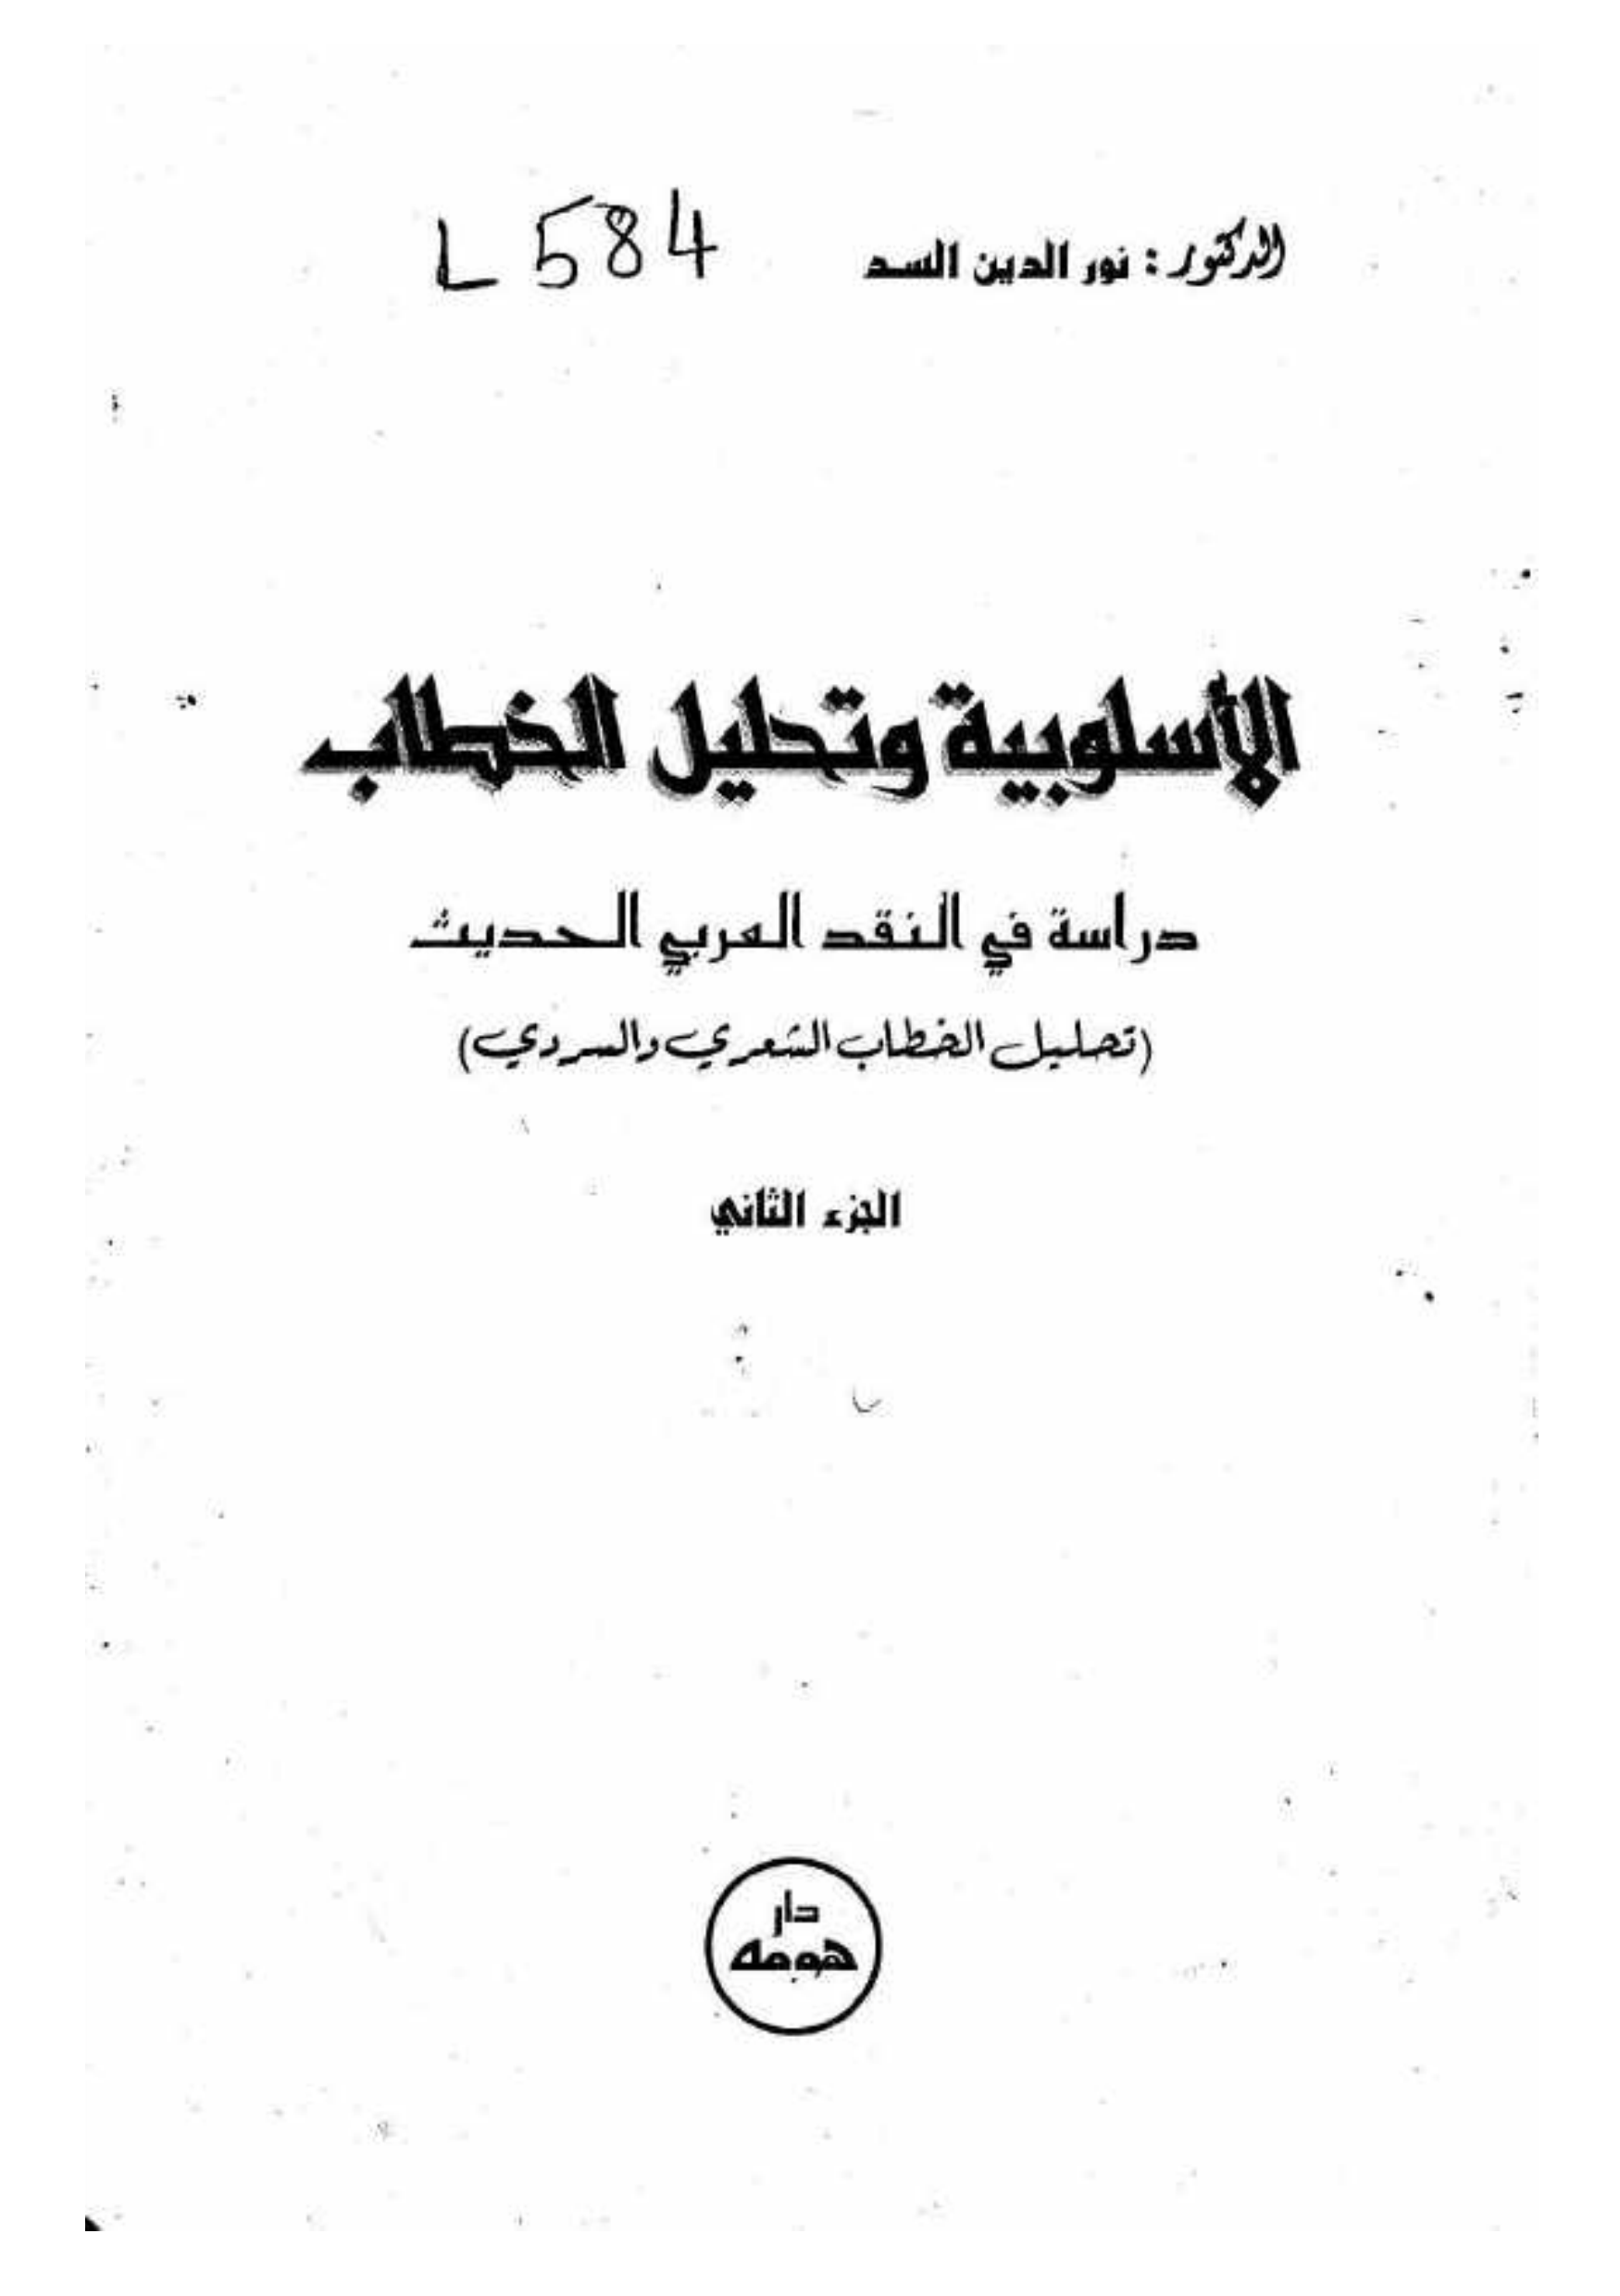 الدكتور : نور الدين السد L 584
الأسلوبية وتحليل الخطاب
دراسة في النقد العربي الحديث
(تحليل الخطاب الشعري والسردي)
الجزء الثاني
دار
هومه